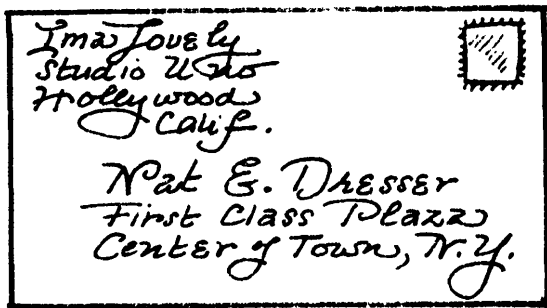 Ima Lovely
Studio U No
Hollywood
Calif.
Nat E. Dresser
First Class Plaza
Center of Town, N.Y.